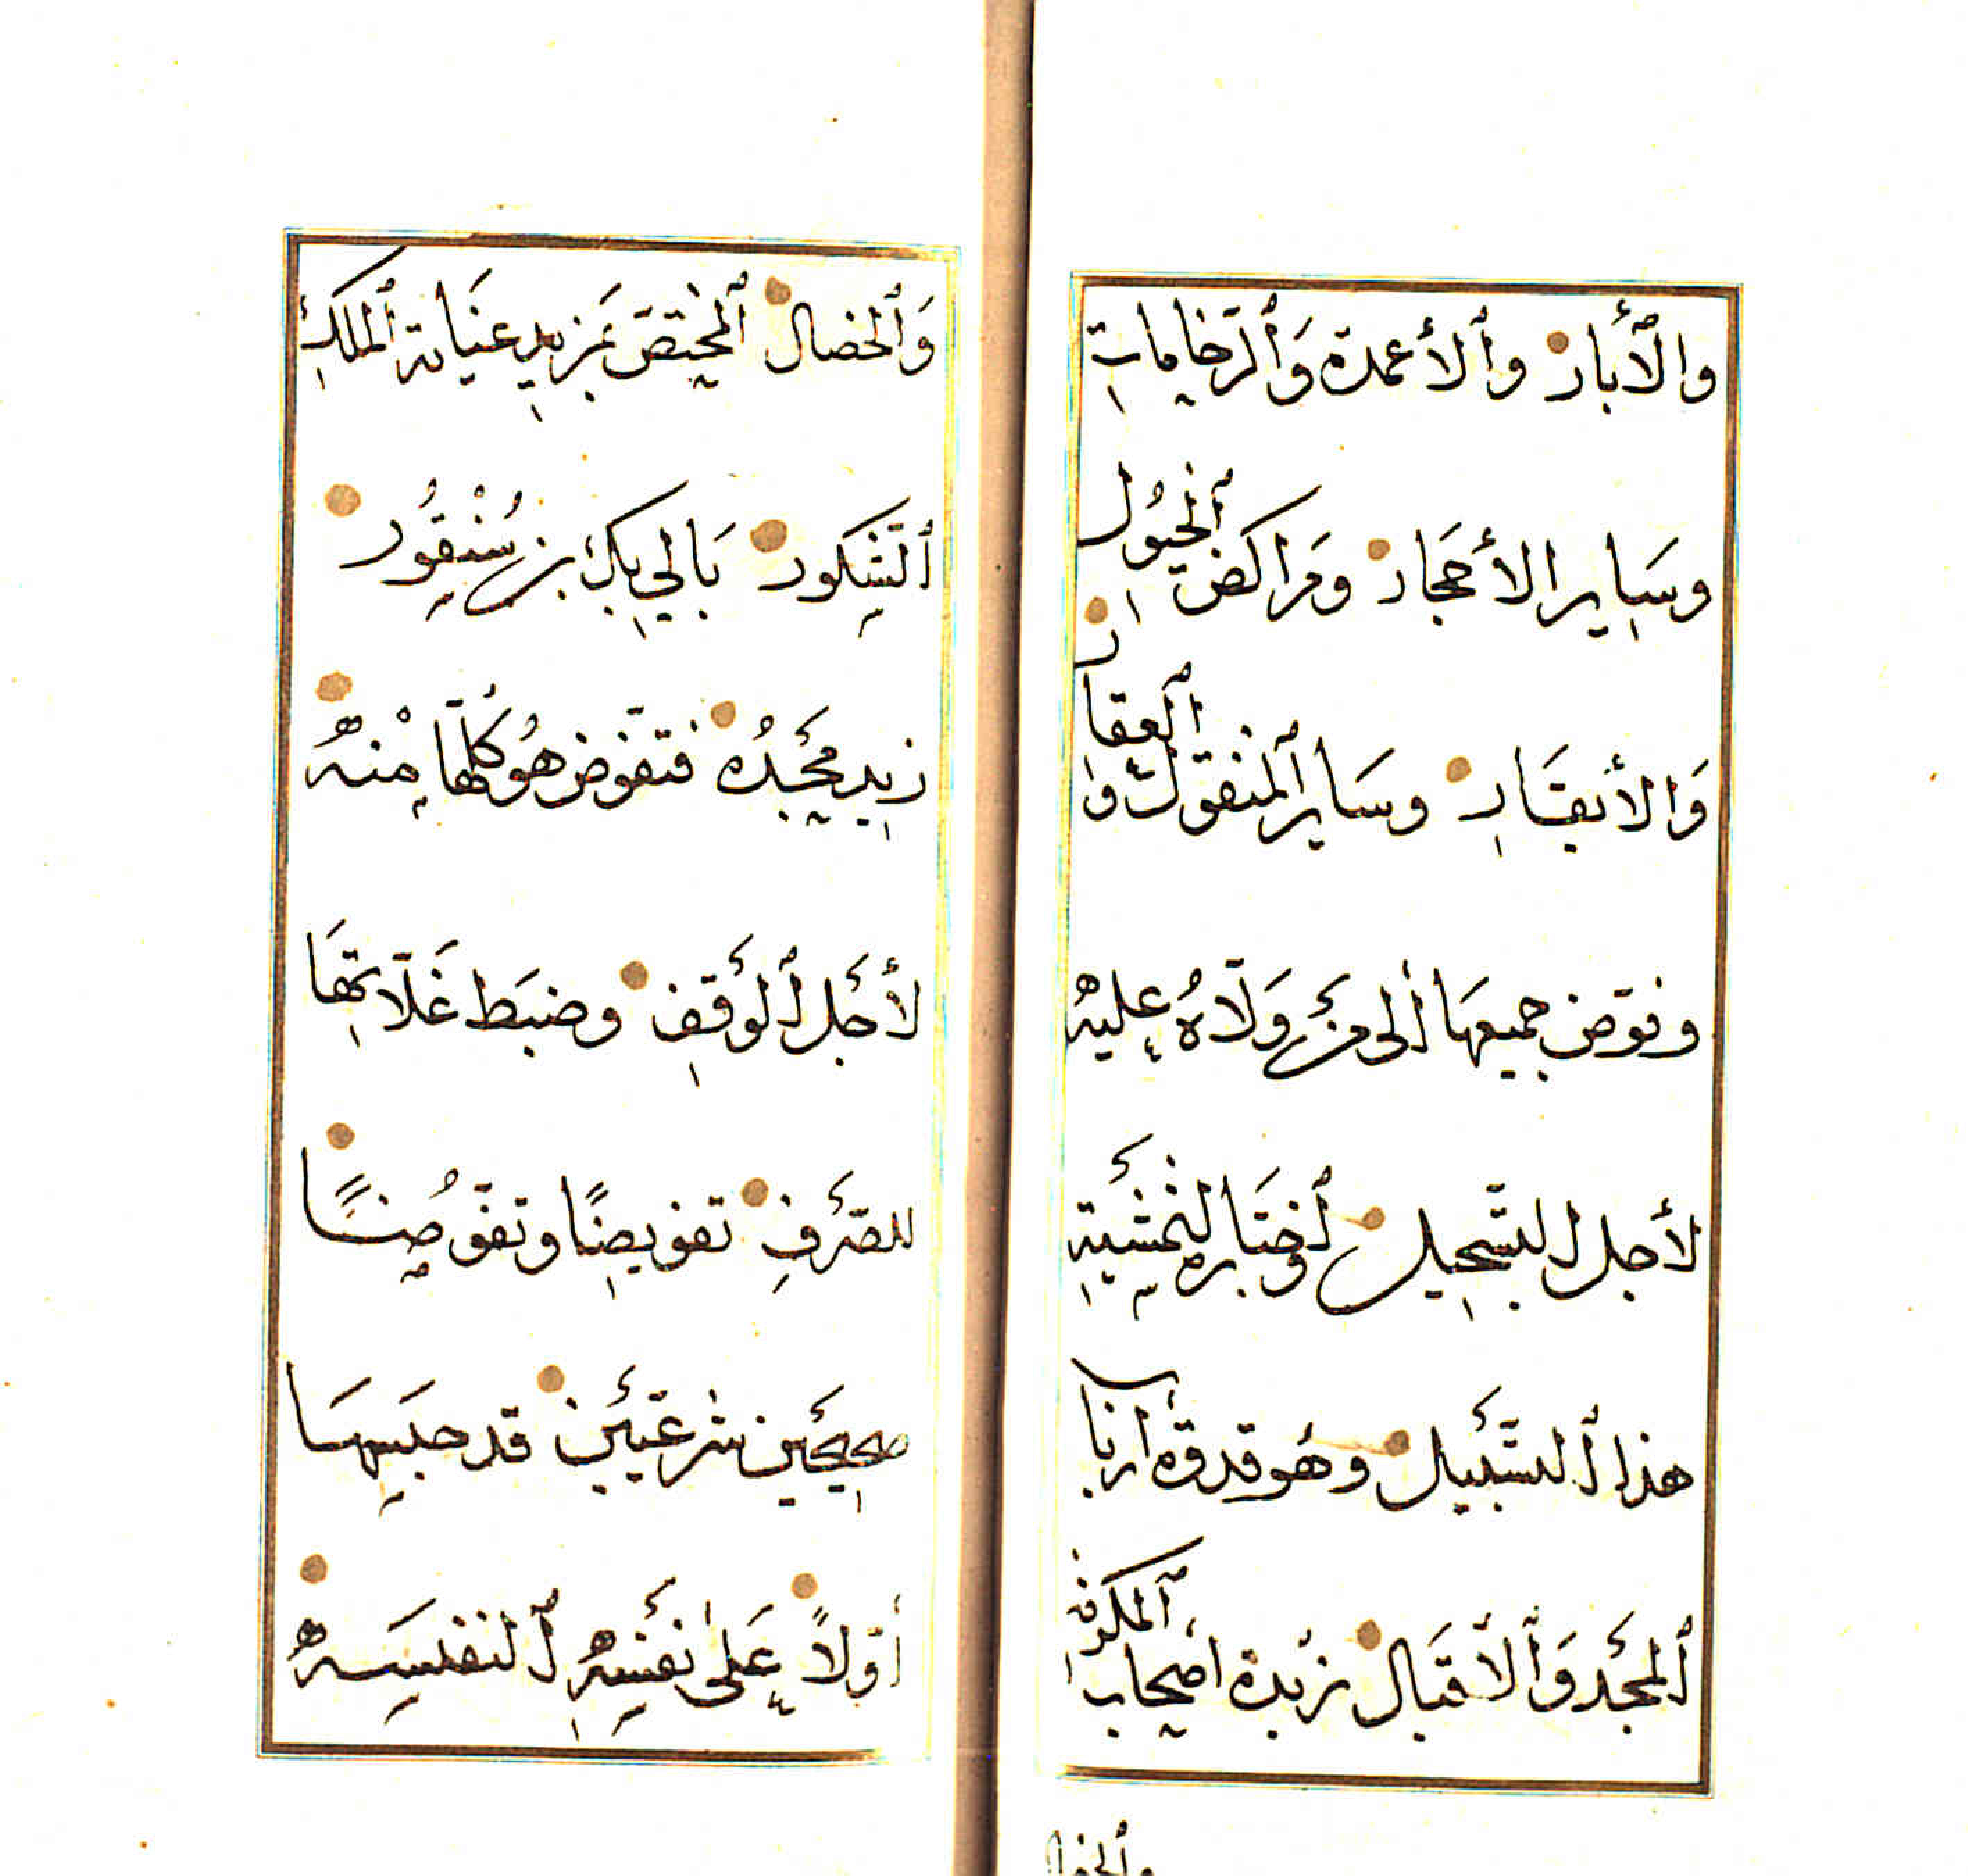 والآبار والأعمدة والرخامات
وساير الأحجار ومراكض الخيول
والأبقار وساير المنقول والعقار
وفوض جميعها إلى من ولاه عليه
لأجل التسجيل واختاره لتمشية
هذا السبيل وهو قدوة أرباب
المجد والاقبال زبدة اصحاب المكرمة
والخصال
والخصال المختص بمزيد عناية الملك
الشكور بالي بك بن سنقور
زيد مجده فتفوض هو كلها منه
لأجل الوقف وضبط غلاتها
للصرف تفويضا وتفوضا
صحيحين شرعيين قد حبسها
أولا على نفسه النفيسه